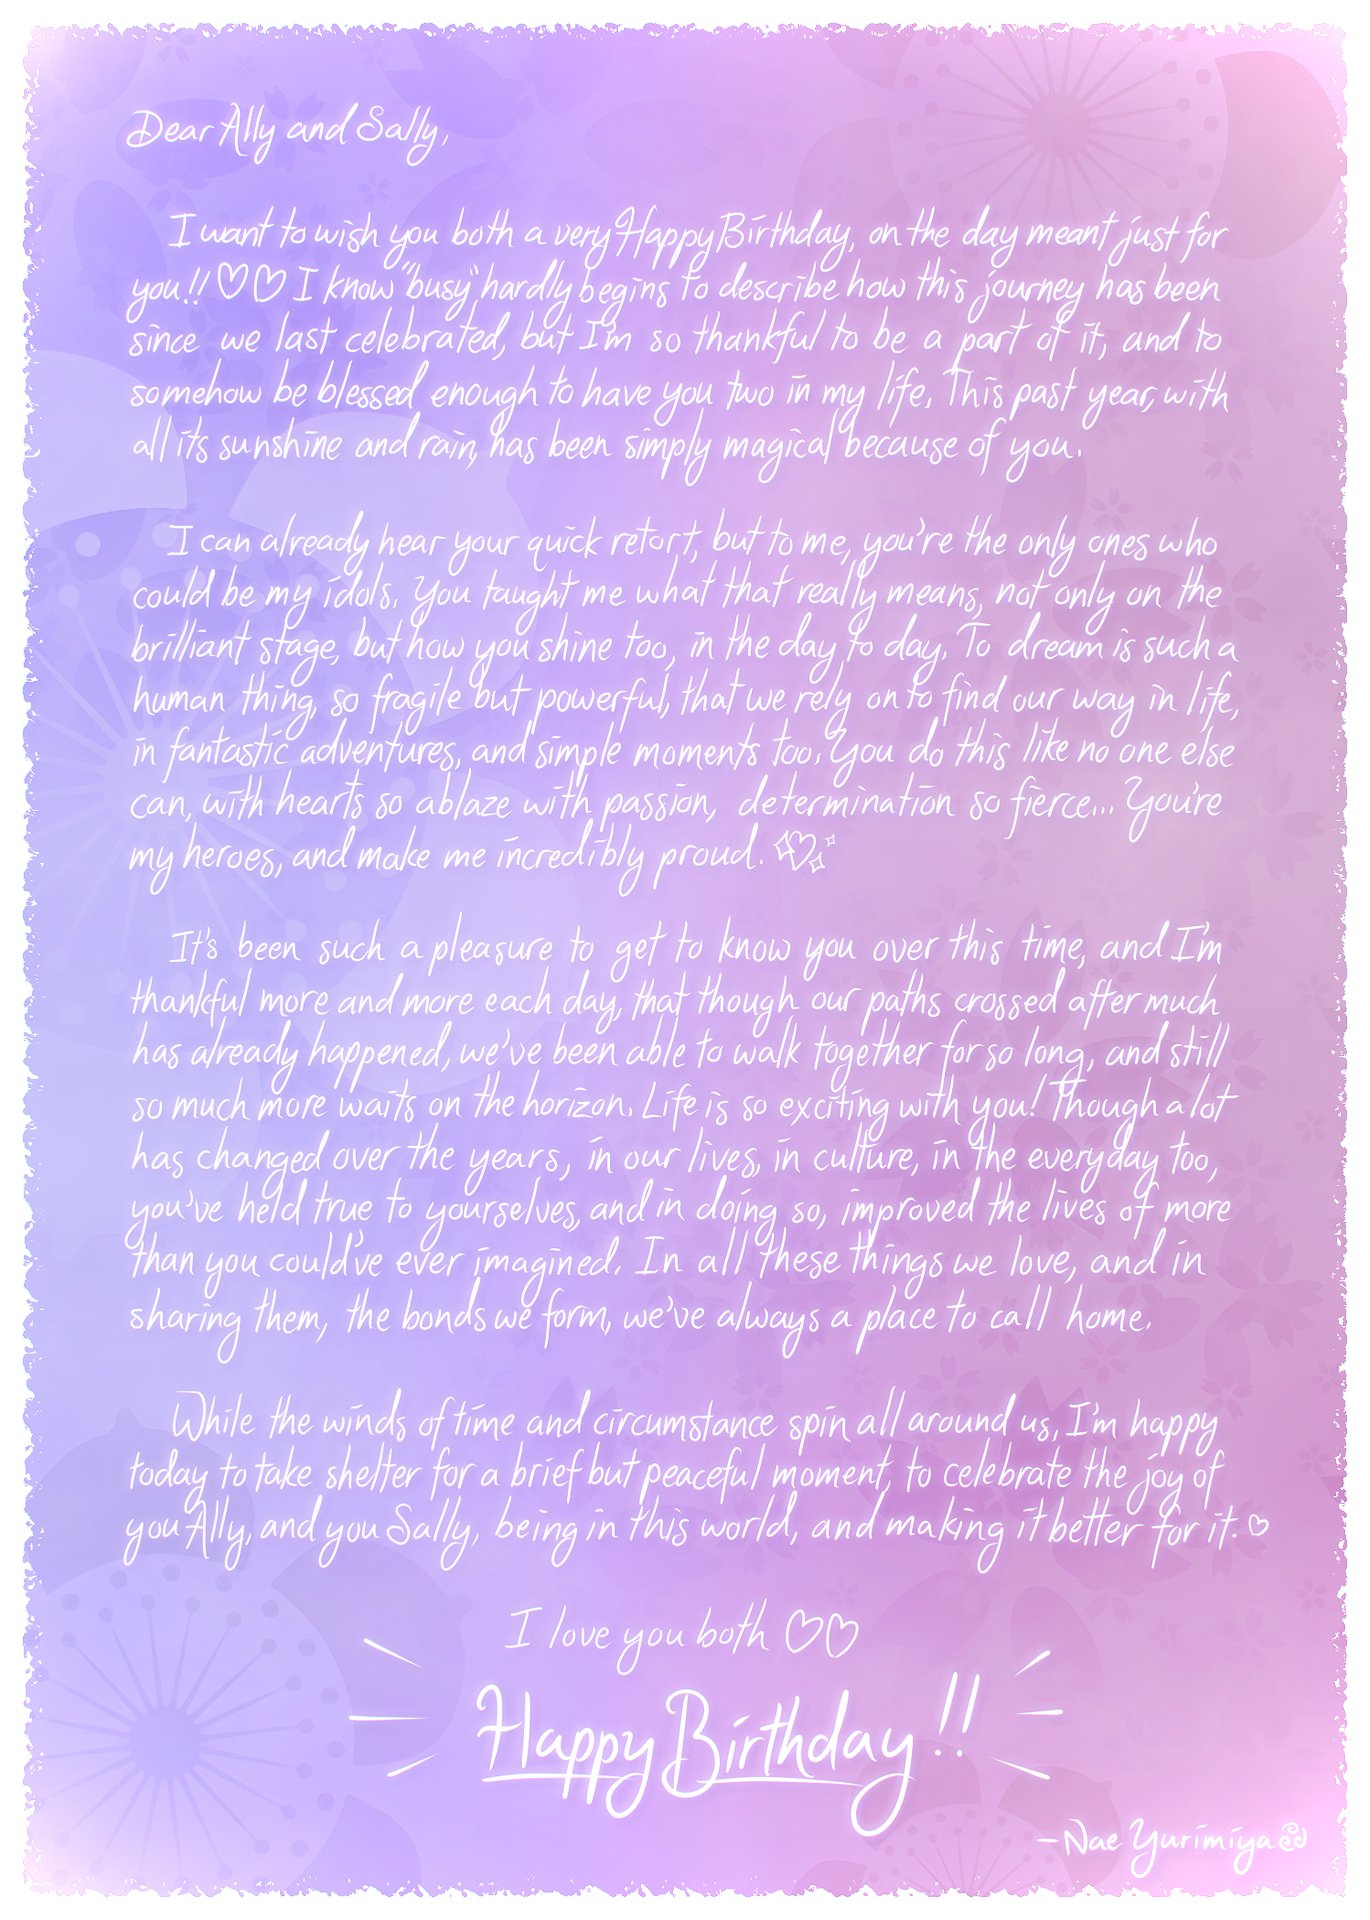 Dear Ally and Sally,
I want to wish you both a very Happy Birthday, on the day meant just for
you!! ♡♡ I know "busy" hardly begins to describe how this journey has been
since we last celebrated, but I'm so thankful to be a part of it, and to
somehow be blessed enough to have you two in my life. This past year, with
all its sunshine and rain, has been simply magical because of you.
I can already hear your quick retort, but to me, you're the only ones who
could be my idols. You taught me what that really means, not only on the
brilliant stage, but how you shine too, in the day to day. To dream is such a
human thing, so fragile but powerful, that we rely on to find our way in life,
in fantastic adventures, and simple moments too. You do this like no one else
can, with hearts so ablaze with passion, determination so fierce... You're
my heroes, and make me incredibly proud. ♡
It's been such a pleasure to get to know you over this time, and I'm
thankful more and more each day, that though our paths crossed after much
has already happened, we've been able to walk together for so long, and still
so much more waits on the horizon. Life is so exciting with you! Though a lot
has changed over the years, in our lives, in culture, in the everyday too,
you've held true to yourselves, and in doing so, improved the lives of more
than you could've ever imagined. In all these things we love, and in
sharing them, the bonds we form, we've always a place to call home.
While the winds of time and circumstance spin all around us, I'm happy
today to take shelter for a brief but peaceful moment, to celebrate the joy of
you Ally, and you Sally, being in this world, and making it better for it. ♡
I love you both ♡♡
Happy Birthday!!
-Nae Yurimiya